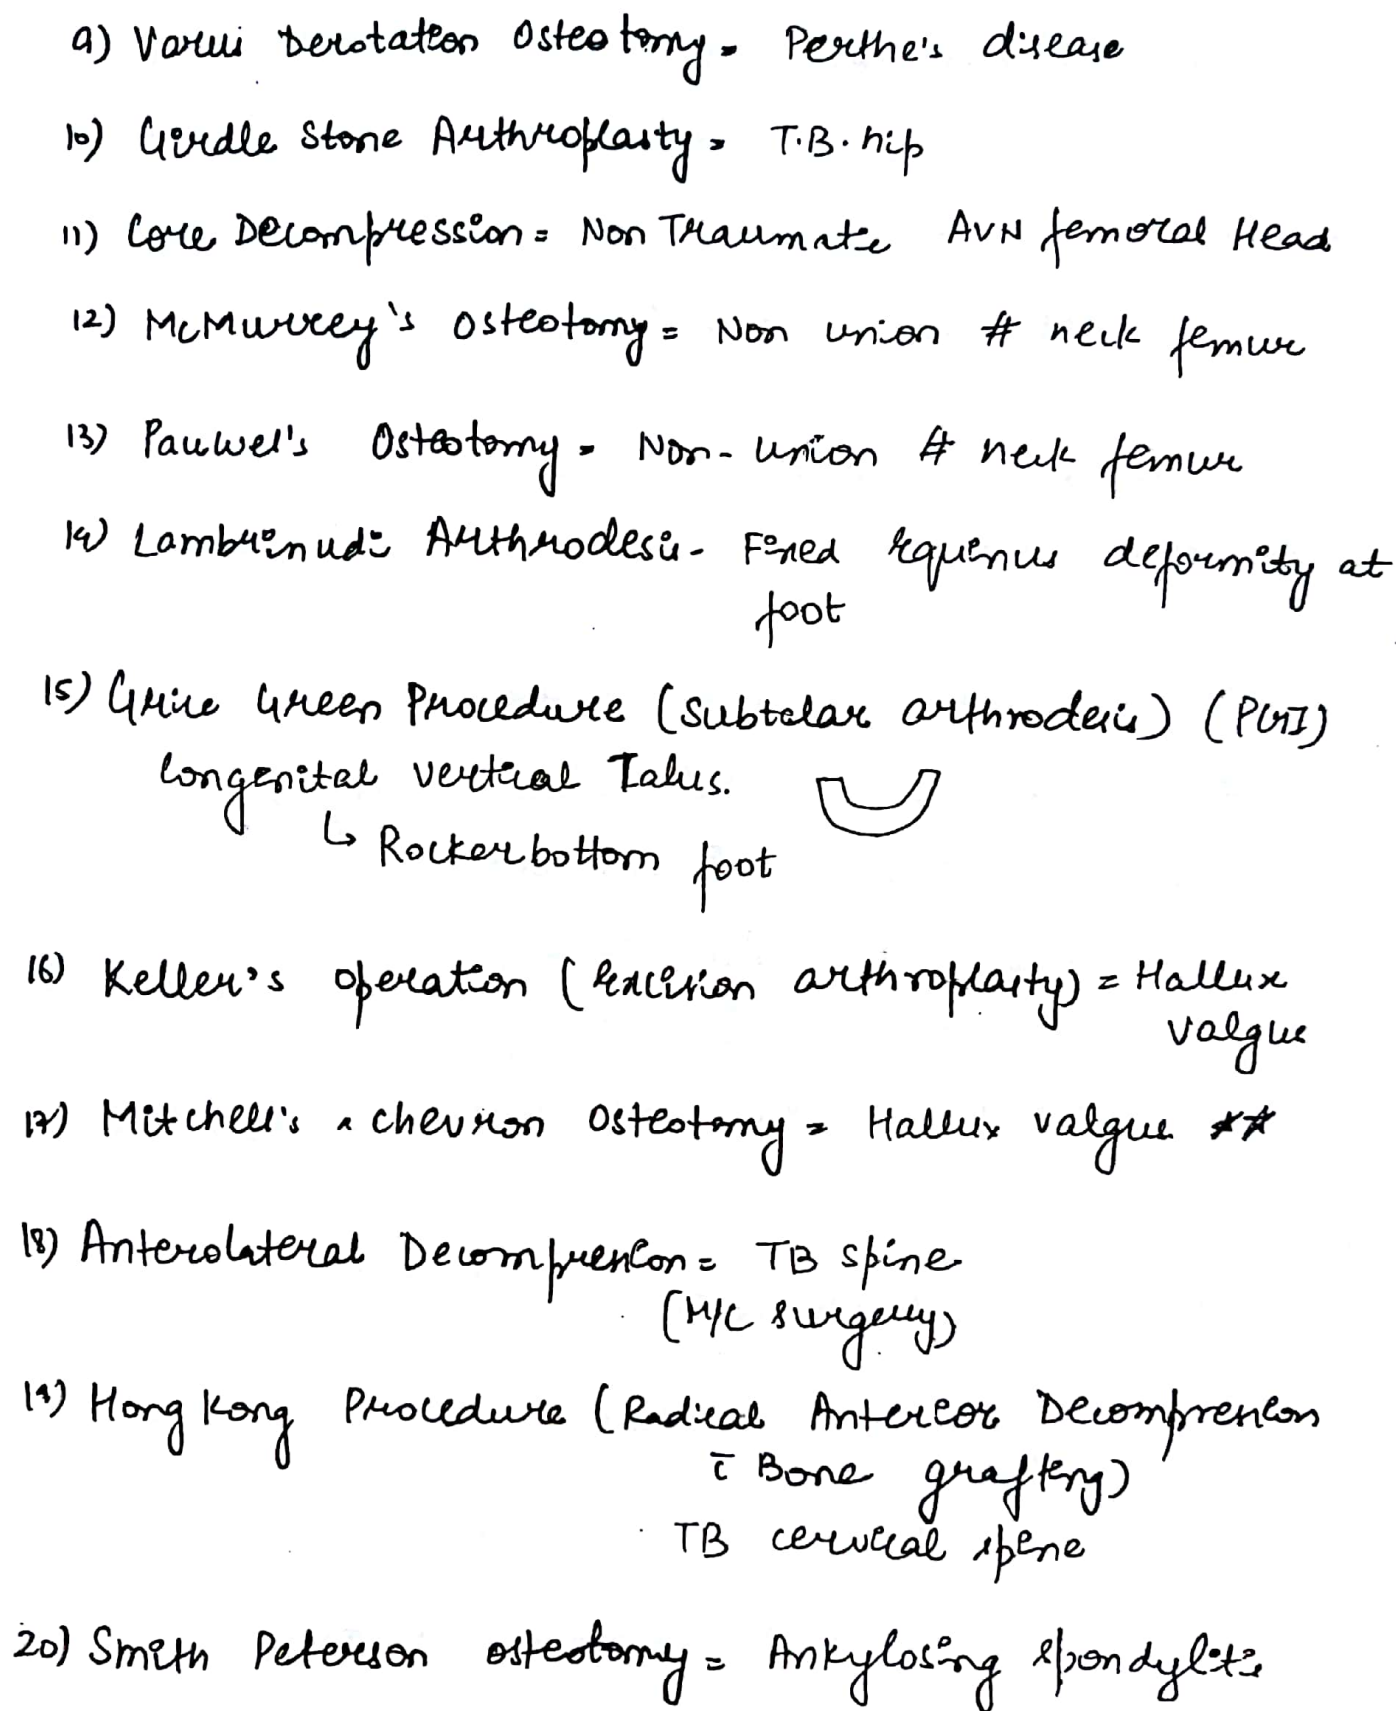 9) Varus Derotation Osteotomy = Perthe's disease
10) Girdle Stone Arthroplasty = T.B. hip
11) Core Decompression = Non Traumatic AVN femoral Head
12) McMurrey's Osteotomy = Non union # neck femur
13) Pauwel's Osteotomy = Non-union # neck femur
14) Lambrinudi Arthrodesis - Fixed Equinus deformity at
foot
15) Grice Green Procedure (Subtalar arthrodesis) (PGI)
Congenital vertical Talus.
↳ Rockerbottom foot
16) Keller's operation (Excision arthroplasty) = Hallux
valgus
17) Mitchell's & chevron Osteotomy = Hallux valgus **
18) Anterolateral Decompression = TB spine
(M/C surgery)
19) Hong Kong Procedure (Radical Anterior Decompression
c̄ Bone grafting)
TB cervical spine
20) Smith Peterson osteotomy = Ankylosing spondylitis